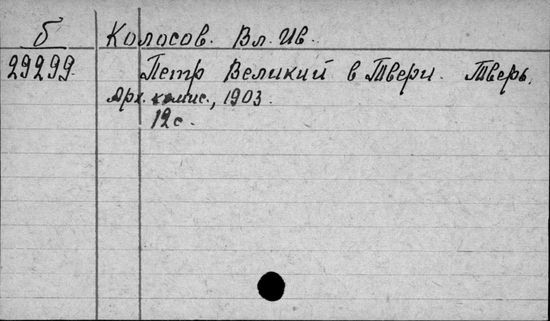 б Колосов. Вл. Ив.
29299. Петр Великий в Твери. Тверь.
Арх. комис., 1903.
12 с.